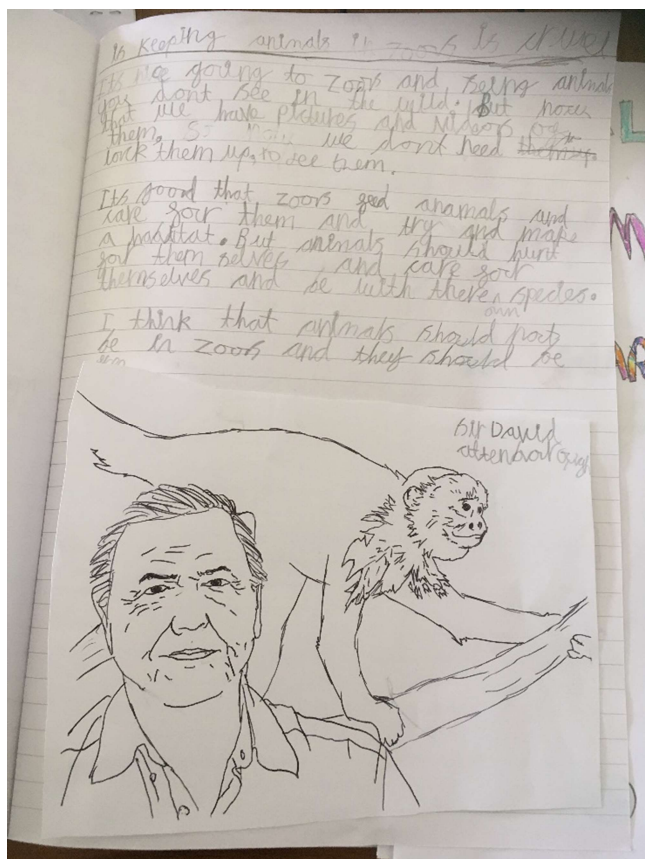 is keeping animals in zoos is cruel
Its nice going to zoos and seing animals
you dont see in the wild. But now
that we have pictures and videos of
them. So we dont need to
lock them up, to see them.
Its good that zoos feed anamals and
care four them and try and make
a habitat. But animals should hunt
for them selves, and care for
themselves and be with there own species.
I think that animals should not
be in zoos and they should be
Sir David
attenborough